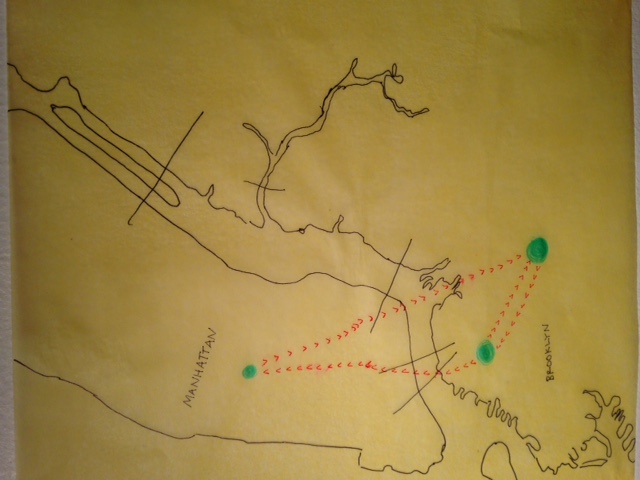 MANHATTAN
BROOKLYN